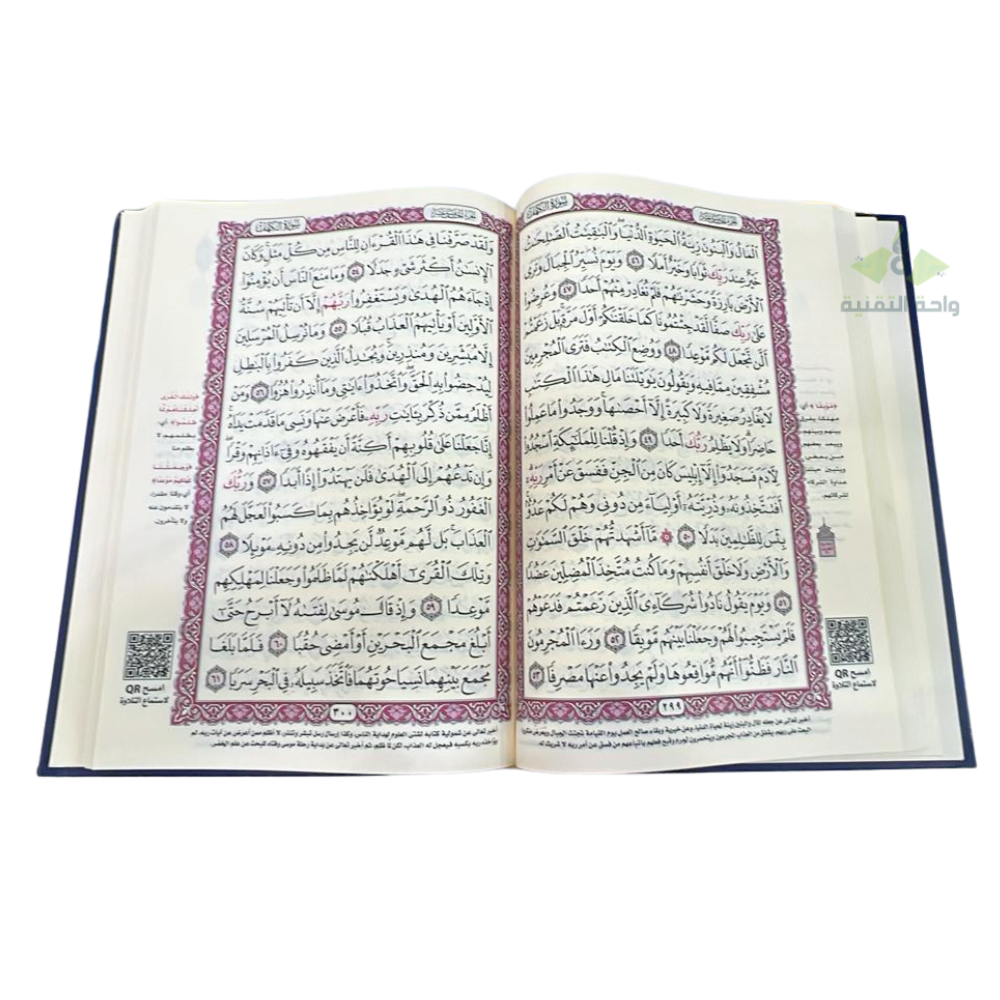 سورة الكهف
الجزء الخامس عشر
ٱلْمَالُ وَٱلْبَنُونَ زِينَةُ ٱلْحَيَوٰةِ ٱلدُّنْيَا ۖ وَٱلْبَـٰقِيَـٰتُ ٱلصَّـٰلِحَـٰتُ
خَيْرٌ عِندَ رَبِّكَ ثَوَابًا وَخَيْرٌ أَمَلًا ٤٦ وَيَوْمَ نُسَيِّرُ ٱلْجِبَالَ وَتَرَى
ٱلْأَرْضَ بَارِزَةً وَحَشَرْنَـٰهُمْ فَلَمْ نُغَادِرْ مِنْهُمْ أَحَدًا ٤٧ وَعُرِضُوا۟
عَلَىٰ رَبِّكَ صَفًّا لَّقَدْ جِئْتُمُونَا كَمَا خَلَقْنَـٰكُمْ أَوَّلَ مَرَّةٍۭ ۚ بَلْ زَعَمْتُمْ
أَلَّن نَّجْعَلَ لَكُم مَّوْعِدًا ٤٨ وَوُضِعَ ٱلْكِتَـٰبُ فَتَرَى ٱلْمُجْرِمِينَ
مُشْفِقِينَ مِمَّا فِيهِ وَيَقُولُونَ يَـٰوَيْلَتَنَا مَالِ هَـٰذَا ٱلْكِتَـٰبِ
لَا يُغَادِرُ صَغِيرَةً وَلَا كَبِيرَةً إِلَّآ أَحْصَىٰهَا ۚ وَوَجَدُوا۟ مَا عَمِلُوا۟
حَاضِرًا ۗ وَلَا يَظْلِمُ رَبُّكَ أَحَدًا ٤٩ وَإِذْ قُلْنَا لِلْمَلَـٰٓئِكَةِ ٱسْجُدُوا۟
لِـَٔادَمَ فَسَجَدُوٓا۟ إِلَّآ إِبْلِيسَ كَانَ مِنَ ٱلْجِنِّ فَفَسَقَ عَنْ أَمْرِ رَبِّهِۦٓ ۗ
أَفَتَتَّخِذُونَهُۥ وَذُرِّيَّتَهُۥٓ أَوْلِيَآءَ مِن دُونِى وَهُمْ لَكُمْ عَدُوٌّۢ ۚ
بِئْسَ لِلظَّـٰلِمِينَ بَدَلًا ٥٠ ۞ مَّآ أَشْهَدتُّهُمْ خَلْقَ ٱلسَّمَـٰوَٰتِ
وَٱلْأَرْضِ وَلَا خَلْقَ أَنفُسِهِمْ وَمَا كُنتُ مُتَّخِذَ ٱلْمُضِلِّينَ عَضُدًا
٥١ وَيَوْمَ يَقُولُ نَادُوا۟ شُرَكَآءِىَ ٱلَّذِينَ زَعَمْتُمْ فَدَعَوْهُمْ
فَلَمْ يَسْتَجِيبُوا۟ لَهُمْ وَجَعَلْنَا بَيْنَهُم مَّوْبِقًا ٥٢ وَرَءَا ٱلْمُجْرِمُونَ
ٱلنَّارَ فَظَنُّوٓا۟ أَنَّهُم مُّوَاقِعُوهَا وَلَمْ يَجِدُوا۟ عَنْهَا مَصْرِفًا ٥٣
٢٩٩
امسح QR
لاستماع التلاوة
سورة الكهف
الجزء الخامس عشر
وَلَقَدْ صَرَّفْنَا فِى هَـٰذَا ٱلْقُرْءَانِ لِلنَّاسِ مِن كُلِّ مَثَلٍ ۚ وَكَانَ
ٱلْإِنسَـٰنُ أَكْثَرَ شَىْءٍ جَدَلًا ٥٤ وَمَا مَنَعَ ٱلنَّاسَ أَن يُؤْمِنُوٓا۟
إِذْ جَآءَهُمُ ٱلْهُدَىٰ وَيَسْتَغْفِرُوا۟ رَبَّهُمْ إِلَّآ أَن تَأْتِيَهُمْ سُنَّةُ
ٱلْأَوَّلِينَ أَوْ يَأْتِيَهُمُ ٱلْعَذَابُ قُبُلًا ٥٥ وَمَا نُرْسِلُ ٱلْمُرْسَلِينَ
إِلَّا مُبَشِّرِينَ وَمُنذِرِينَ ۚ وَيُجَـٰدِلُ ٱلَّذِينَ كَفَرُوا۟ بِٱلْبَـٰطِلِ
لِيُدْحِضُوا۟ بِهِ ٱلْحَقَّ ۖ وَٱتَّخَذُوٓا۟ ءَايَـٰتِى وَمَآ أُنذِرُوا۟ هُزُوًا ٥٦ وَمَنْ
أَظْلَمُ مِمَّن ذُكِّرَ بِـَٔايَـٰتِ رَبِّهِۦ فَأَعْرَضَ عَنْهَا وَنَسِىَ مَا قَدَّمَتْ يَدَاهُ ۚ
إِنَّا جَعَلْنَا عَلَىٰ قُلُوبِهِمْ أَكِنَّةً أَن يَفْقَهُوهُ وَفِىٓ ءَاذَانِهِمْ وَقْرًا ۖ
وَإِن تَدْعُهُمْ إِلَى ٱلْهُدَىٰ فَلَن يَهْتَدُوٓا۟ إِذًا أَبَدًا ٥٧ وَرَبُّكَ
ٱلْغَفُورُ ذُو ٱلرَّحْمَةِ ۖ لَوْ يُؤَاخِذُهُم بِمَا كَسَبُوا۟ لَعَجَّلَ لَهُمُ
ٱلْعَذَابَ ۚ بَل لَّهُم مَّوْعِدٌ لَّن يَجِدُوا۟ مِن دُونِهِۦ مَوْئِلًا ٥٨
وَتِلْكَ ٱلْقُرَىٰٓ أَهْلَكْنَـٰهُمْ لَمَّا ظَلَمُوا۟ وَجَعَلْنَا لِمَهْلِكِهِم
مَّوْعِدًا ٥٩ وَإِذْ قَالَ مُوسَىٰ لِفَتَىٰهُ لَآ أَبْرَحُ حَتَّىٰٓ
أَبْلُغَ مَجْمَعَ ٱلْبَحْرَيْنِ أَوْ أَمْضِىَ حُقُبًا ٦٠ فَلَمَّا بَلَغَا
مَجْمَعَ بَيْنِهِمَا نَسِيَا حُوتَهُمَا فَٱتَّخَذَ سَبِيلَهُۥ فِى ٱلْبَحْرِ سَرَبًا ٦١
٣٠٠
امسح QR
لاستماع التلاوة
واحة التقنية